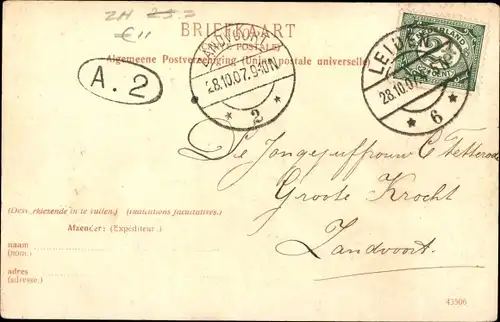 ZH 25.=
€11
BRIEFKAART
Algemeene Postvereeniging (Union postale universelle)
A.2
ZANDVOORT
28.10.07.9-10N
* 2 *
LEIDEN
28.10.07
* 6 *
NEDERLAND
CENT
De Jongejuffrouw C Tetterode
Groote Krocht
Zandvoort.
(Deze in te vullen.) (indications facultatives.)
Afzender: (Expéditeur.)
naam
(nom.)
adres
(adresse.)
43506